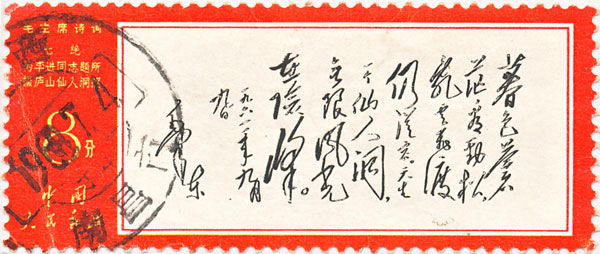 毛主席诗词
七绝
为李进同志题所
摄庐山仙人洞照
8分
中国
人民邮政
暮色蒼
茫看勁松
亂雲飛渡
仍從容天生
一个仙人洞
無限風光
在險峰
一九六一年九月
九日
毛澤东
南昌